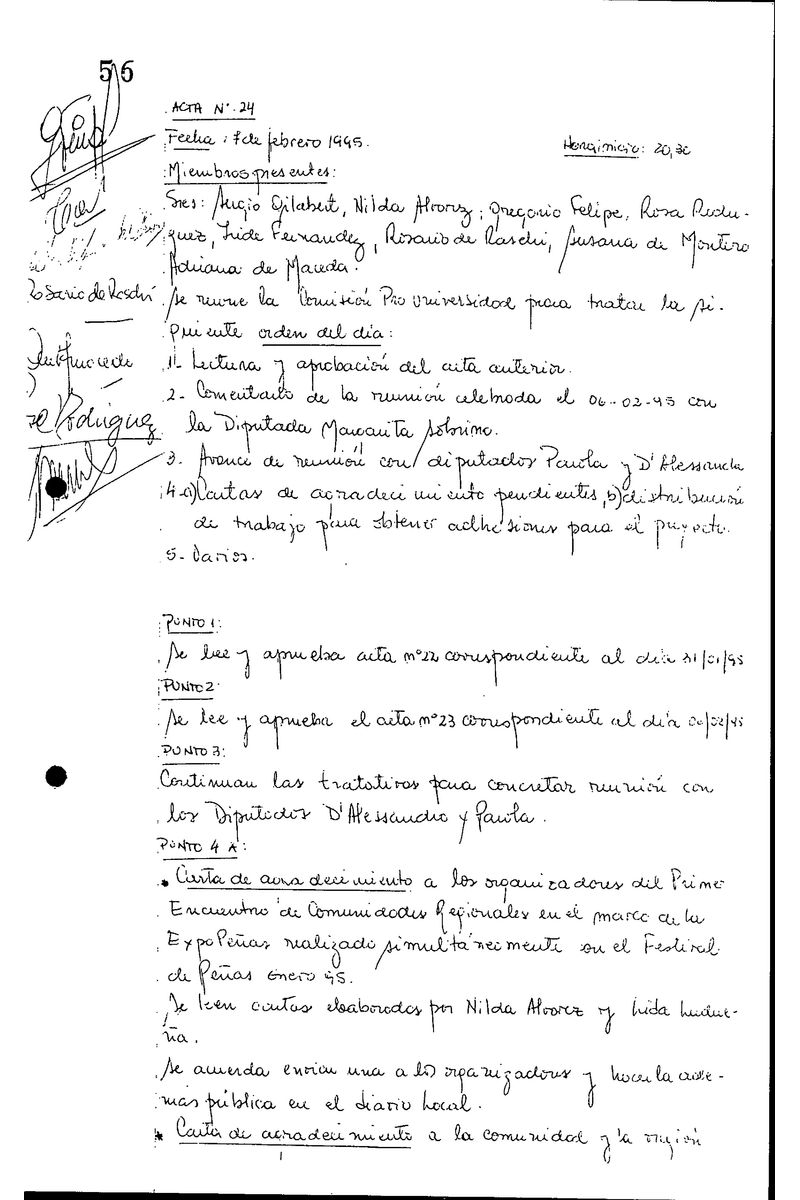 56
ACTA Nº 24
Fecha: 7 de febrero 1995.
Hora inicio: 20,30
Miembros presentes:
Sres: Sergio Gilabert, Nilda Alvarez, Gregorio Felipe, Rosa Rodri-
guez, Fernandez, Rosario de Raschi, Susana de Montero
Adriana de Maceda.
Se reune la Comisión Pro Universidad para tratar la si-
guiente orden del día:
1- Lectura y aprobación del acta anterior.
2- Comentario de la reunión celebrada el 06-02-95 con
la Diputada Margarita Sobrino.
3. Avance de reunión con diputados Parola y D'Alessandro
4-a) Cartas de agradecimiento pendientes, b) distribución
de trabajo para obtener adhesiones para el proyecto.
5- Varios.
Rosario de Raschi
Rodriguez
PUNTO 1:
Se lee y aprueba acta nº22 correspondiente al día 31/01/95
PUNTO 2
Se lee y aprueba el acta nº23 correspondiente al día 06/02/95
PUNTO 3:
Continuan las tratativas para concretar reunión con
los Diputados D'Alessandro y Parola.
PUNTO 4 A:
• Carta de agradecimiento a los organizadores del Primer
Encuentro de Comunidades Regionales en el marco de la
ExpoPeñas realizado simultáneamente con el Festival
de Peñas Enero 95.
Se leen cartas elaboradas por Nilda Alvarez y Lida Ludue-
ña.
Se acuerda enviar una a los organizadores y hacerla ade-
más pública en el diario local.
• Carta de agradecimiento a la comunidad y la región